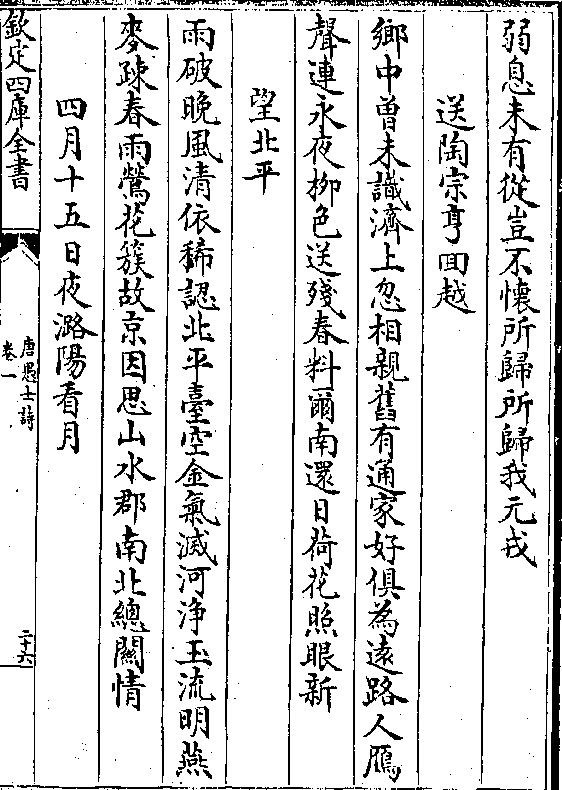 弱息未有從豈不懷所歸所歸我元戎
送陶宗亨回越
鄉中曾未識濟上忽相親舊有通家好俱為遠路人鴈
聲連永夜栁色送殘春料爾南還日荷花照眼新
望北平
雨破晚風清依稀認北平臺空金氣滅河浄玉流明燕
麥疎春雨鶯花簇故京因思山水郡南北總闗情
四月十五日夜潞陽看月
欽定四庫全書
唐愚士詩
卷一
二十六